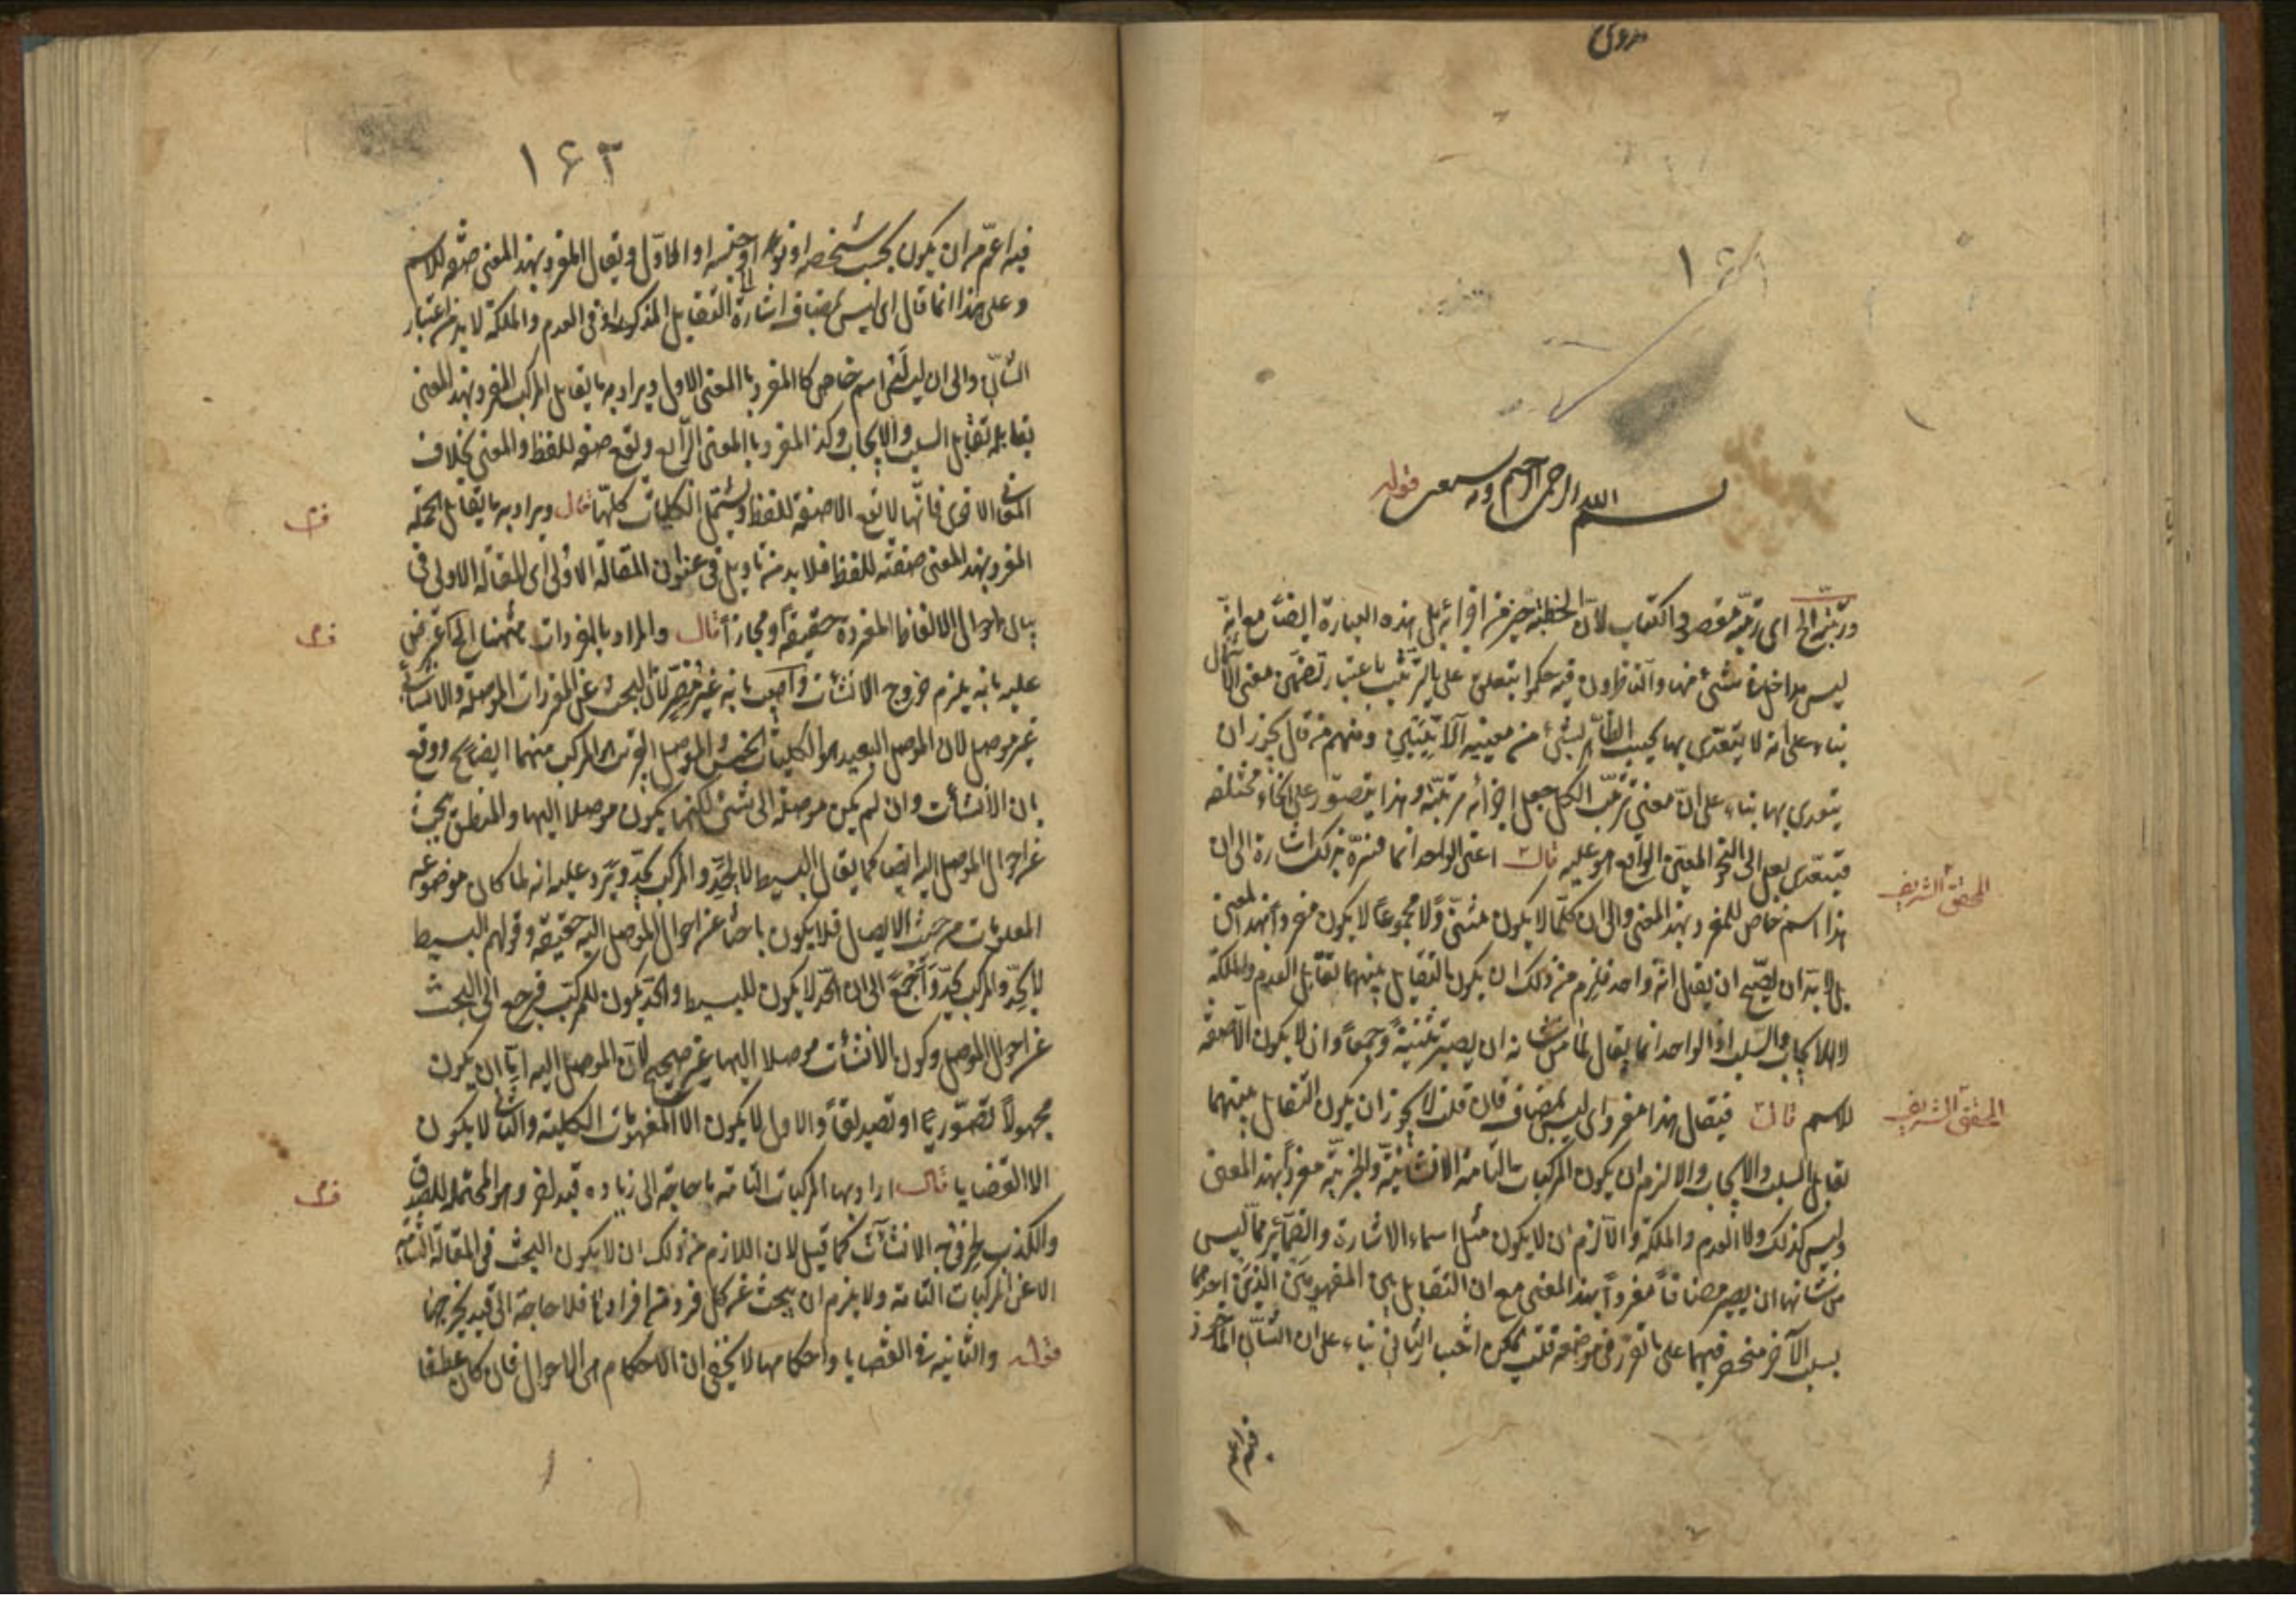 بسم الله الرحمن الرحيم وبه نستعين قوله
ورتبته الخ اى رتبت مقصود الكتاب لان الخطبة جزء من اجزائه بل هذه العبارة ايضا مع انه
ليس مداخلة شئ منها وآلتفزاون فيه حكموا بتعلق على بالترتيب باعتبار تضمن معنى الاشتمال
بناء على انه لا يتعدى بها بحسب الظاهر بشئ من معنييه الآتيين ومنهم من قال يجوز ان
يتعدى بها بناء على ان معنى ترتب الكل جعل اجزائه مرتبة وهذا يتصور على انحاء مختلفة
فيتعدى بعلى الى النحو المعين الواقع هو عليه قال اعنى الواحد انما فسره بذلك اشارة الى ان
المحقق الشريف
هذا اسم خاص للمفرد بهذا المعنى والى ان كلما لا يكون مثنى ولا مجموعا لا يكون مفردا بهذا المعنى
بل لا بد ان يصح ان يقال انه واحد فلزم من ذلك ان يكون التقابل بينهما تقابل العدم والملكة
لا الايجاب والسلب اذ الواحد انما يقال لما من شانه ان يصير تثنية وجمعا وان لا يكون الا صفة
للاسم قال فيقال هذا مفرد اى ليس بمضاف فان قلت لا يجوز ان يكون التقابل بينهما
المحقق الشريف
تقابل السلب والايجاب والا لزم ان يكون المركبات التامة الانشائية والخبرية مفردا بهذا المعنى
وليس كذلك ولا العدم والملكة والا لزم ان لا يكون مثل اسماء الاشارة والضمائر مما ليس
من شانها ان يصير مضافا مفردا بهذا المعنى مع ان التقابل بين المفهومين الذين احدهما
سلب الآخر منحصر فيهما على ما تقرر فى موضعه قلت يمكن اختيار الثانى بناء على ان الشان المأخوذ
١٦٣
فيه اعم من ان يكون بحسب شخصه او نوعه او جنسه او الاول ويقال المفرد بهذا المعنى صفة للاسم
وعلى هذا انما قال اى ليس بمضاف اشارة الى التقابل المذكور اذ فى العدم والملكة لا بد من اعتبار
الشان والى ان ليس له اسم خاص كالمفرد بالمعنى الاول ويراد به ما يقابل المركب المفرد بهذا المعنى
يقابله تقابل السلب والايجاب وكذا المفرد بالمعنى الرابع ويقع صفة للفظ والمعنى بخلاف
المعانى الاخرى فانها لا تقع الا صفة للفظ ويشتمل الكليات كلها قال ويراد به ما يقابل الجملة
المفرد بهذا المعنى صفة للفظ فلا بد من تاويل فى عنوان المقالة الاولى اى المقالة الاولى فى
بيان احوال الالفاظ المفردة حقيقة او مجازا قال والمراد بالمفردات ههنا الخ اعترض
عليه بانه يلزم خروج الانشآت واجيب بانه غير مضر لان البحث عن المفردات الموصلة والانشآت
غير موصل لان الموصل البعيد هو الكليات الخمس والموصل القريب هو المركب منهما ايضا ووقع
بان الانشآت وان لم يكن موصلة الى شئ لكنها يكون موصلا اليها والمنطق يبحث
عن احوال الموصل اليه ايضا كما يقال البسيط لا يحد والمركب يحد ويرد عليه انه لما كان موضوعه
المعلومات من حيث الايصال فلا يكون باحثا عن احوال الموصل اليه حقيقة وقولهم البسيط
لا يحد والمركب يحد راجع الى ان الحد لا يكون للبسيط والحد يكون للمركب فرجع الى البحث
عن احوال الموصل وكون الانشآت موصلا اليها غير صحيح لان الموصل اليه اما ان يكون
مجهولا تصوريا او تصديقا والاول لا يكون الا المفهومات الكلية والثانى لا يكون
الا القضايا قال اراد بها المركبات التامة ما حاجة الى زيادة قيد اخر وهو المحتملة للصدق
والكذب بخروج الانشآت كما قيل لان اللازم من ذلك ان لا يكون البحث فى المقالة الثانية
الا عن المركبات التامة ولا يلزم ان يبحث عن كل فرد من افرادها فلا حاجة الى قيد يخرجها
قوله والثانية فى القضايا واحكامها لا يخفى ان الاحكام هى الاحوال فان كان عطفا